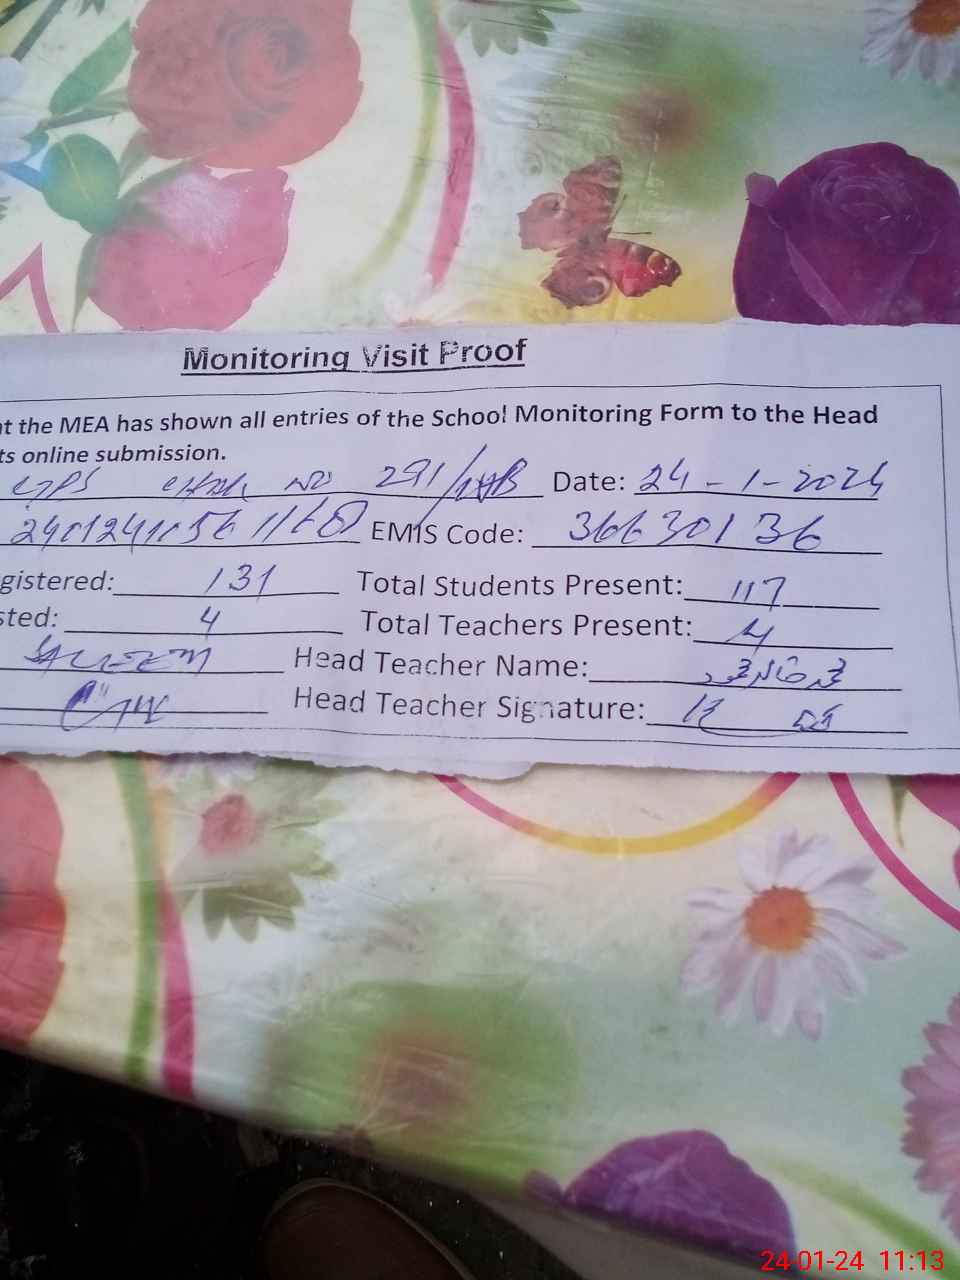 Monitoring Visit Proof
at the MEA has shown all entries of the School Monitoring Form to the Head
ts online submission.
GPS Chak No 291/ Date: 24-1-2024
EMIS Code: 36630136
gistered: 131 Total Students Present: 117
sted: 4 Total Teachers Present: 4
SALEEM Head Teacher Name:
Head Teacher Signature:
24-01-24 11:13